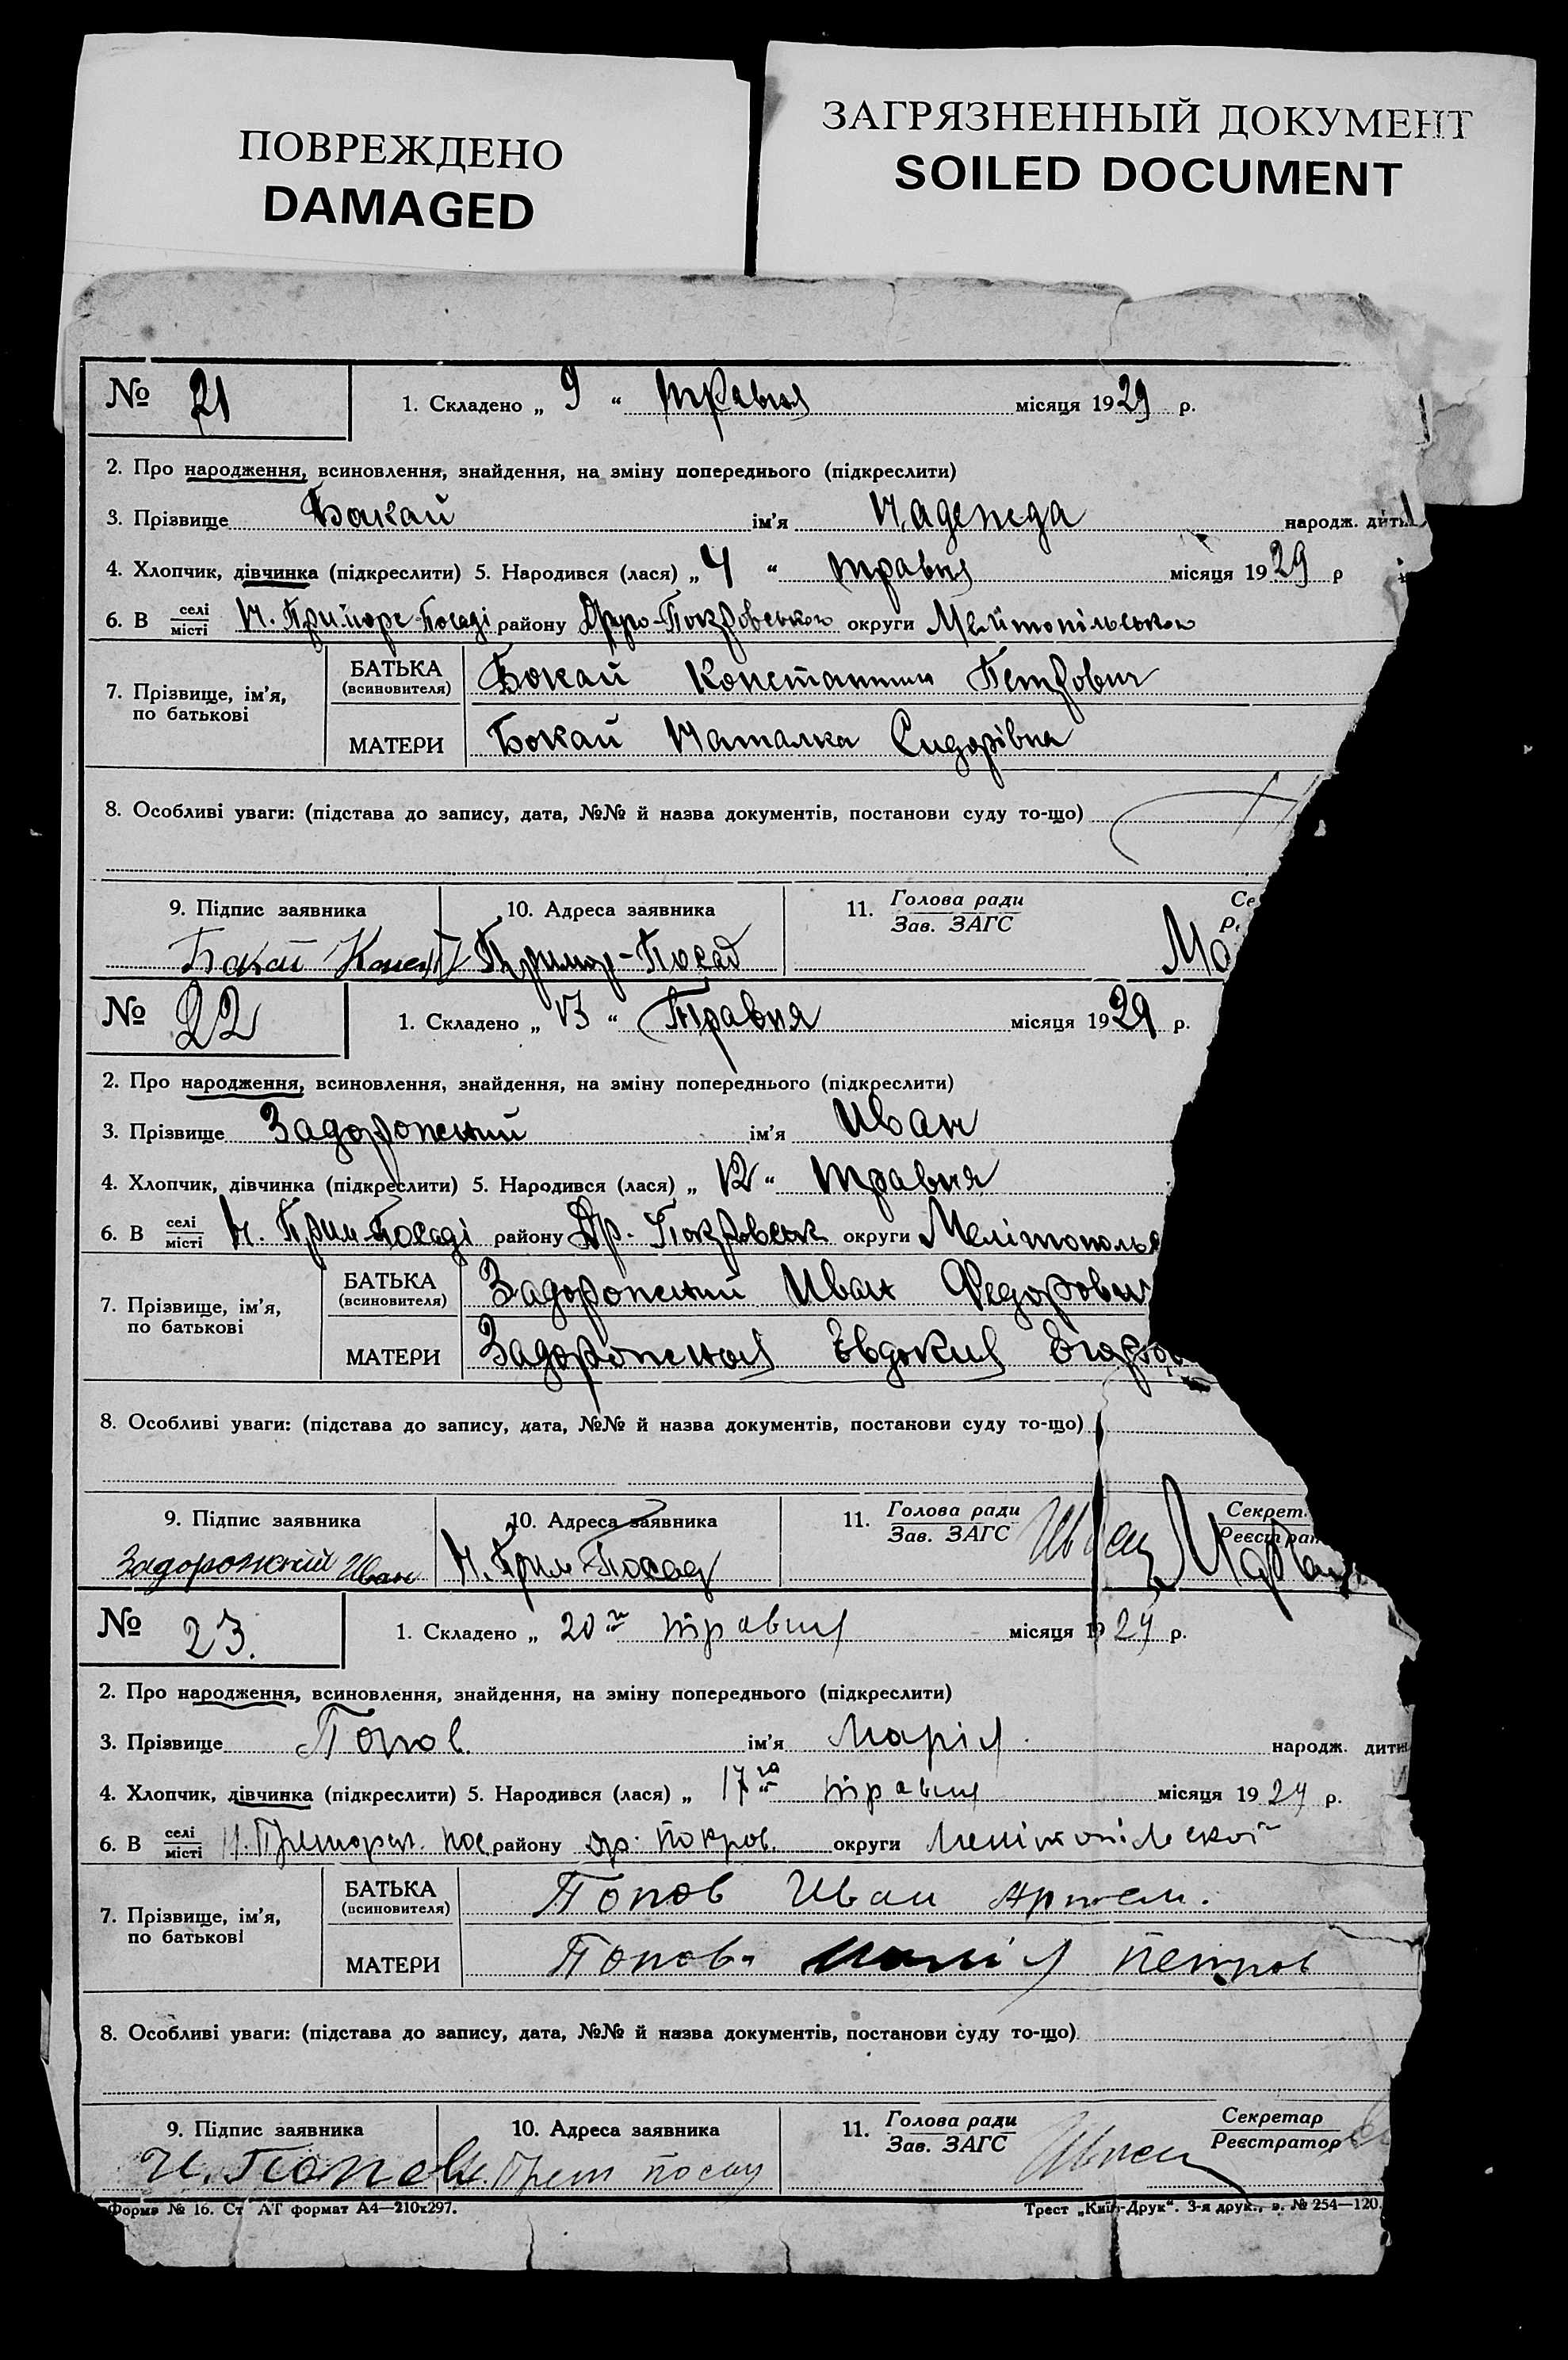 ПОВРЕЖДЕНО
DAMAGED
ЗАГРЯЗНЕННЫЙ ДОКУМЕНТ
SOILED DOCUMENT
№ 21
1. Складено „ 9 “ травня місяця 1929 р.
2. Про народження, всиновлення, знайдення, на зміну попереднього (підкреслити)
3. Прізвище Бакай ім’я Надежда народж. дити
4. Хлопчик, дівчинка (підкреслити) 5. Народився (лася) „ 4 “ травня місяця 1929 р
6. В селі/місті Н. Приморс-Посаді району Покровського округи Мелітопільсько
7. Прізвище, ім’я, по батькові
БАТЬКА (всиновителя) Бокай Константин Петрович
МАТЕРИ Бокай Наталка Сидорівна
8. Особливі уваги: (підстава до запису, дата, №№ й назва документів, постанови суду то-що)
9. Підпис заявника 10. Адреса заявника 11. Голова ради
Зав. ЗАГС
Бакай Конст Примор-Посад Ма
№ 22
1. Складено „ 13 “ Травня місяця 1929 р.
2. Про народження, всиновлення, знайдення, на зміну попереднього (підкреслити)
3. Прізвище Задорожний ім’я Иван
4. Хлопчик, дівчинка (підкреслити) 5. Народився (лася) „ 12 “ травня
6. В селі/місті Н. Прим-Посаді району Др. Покровськ округи Мелітополь
7. Прізвище, ім’я, по батькові
БАТЬКА (всиновителя) Задорожний Иван Федорович
МАТЕРИ Задорожная Евдокия Егоро
8. Особливі уваги: (підстава до запису, дата, №№ й назва документів, постанови суду то-що)
9. Підпис заявника 10. Адреса заявника 11. Голова ради Секрет.
Зав. ЗАГС Реєстрат
Задорожний Иван Н. Прим Посад
№ 23.
1. Складено „ 20го травня місяця 1929 р.
2. Про народження, всиновлення, знайдення, на зміну попереднього (підкреслити)
3. Прізвище Попов ім’я Марія народж. дитин
4. Хлопчик, дівчинка (підкреслити) 5. Народився (лася) „ 17го травня місяця 1929 р.
6. В селі/місті Н. Приморск. пос району др. покров. округи Мелітопільской
7. Прізвище, ім’я, по батькові
БАТЬКА (всиновителя) Попов Иван Артем.
МАТЕРИ Попова петров
8. Особливі уваги: (підстава до запису, дата, №№ й назва документів, постанови суду то-що)
9. Підпис заявника 10. Адреса заявника 11. Голова ради Секретар
Зав. ЗАГС Реєстратор
И. Попов Н. Прем посад
Форма № 16. Ст АТ формат А4—210х297.
Трест „Київ-Друк“. 3-я друк., з. № 254—120.